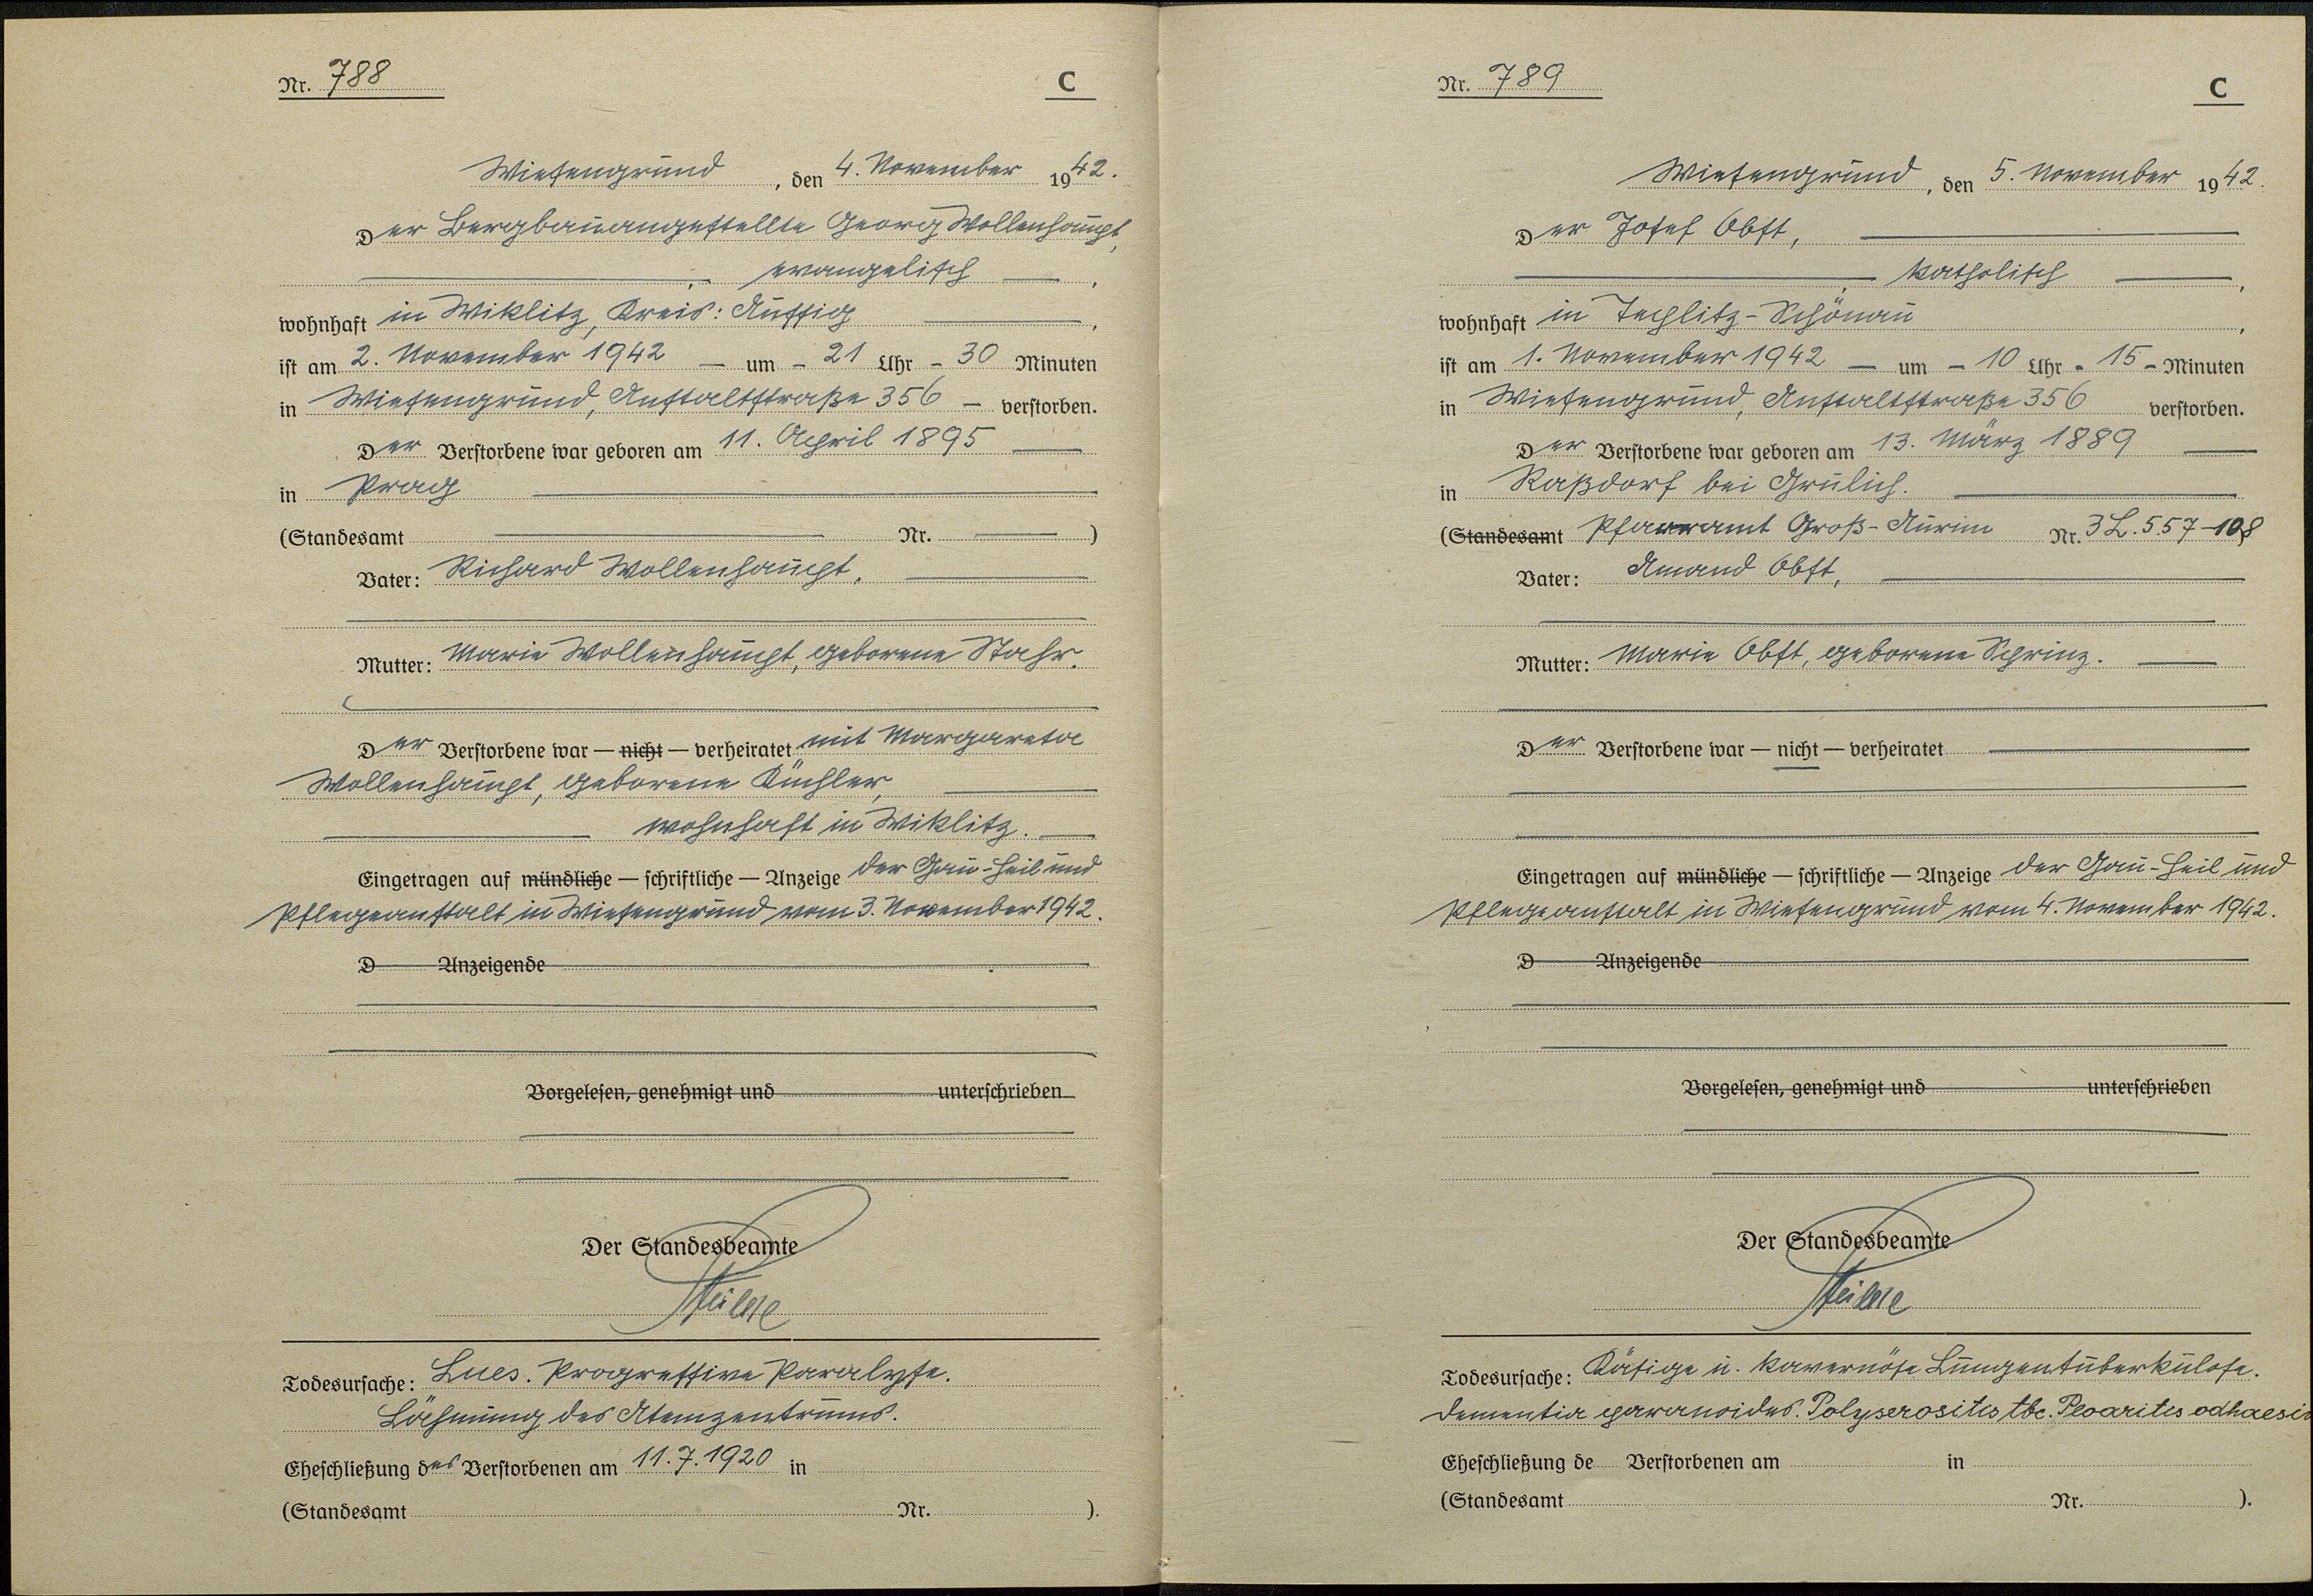 Nr. 788
C
Wiesengrund, den 4. November 1942.
Der Bergbauangestellte Georg Wollenhaupt,
, evangelisch ,
wohnhaft in Wiklitz, Kreis: Aussig ,
ist am 2. November 1942 — um – 21 Uhr – 30 Minuten
in Wiesengrund, Anstaltstraße 356 – verstorben.
Der Verstorbene war geboren am 11. April 1895
in Prag
(Standesamt Nr. )
Vater: Richard Wollenhaupt,
Mutter: Marie Wollenhaupt, geborene Stahr.
Der Verstorbene war — nicht — verheiratet mit Margareta
Wollenhaupt, geborene Küchler,
wohnhaft in Wiklitz.
Eingetragen auf mündliche — schriftliche — Anzeige der Gau-Heil und
Pflegeanstalt in Wiesengrund vom 3. November 1942.
D Anzeigende
Vorgelesen, genehmigt und unterschrieben
Der Standesbeamte
Todesursache: Lues. Progressive Paralyse.
Lähmung des Atemzentrums.
Eheschließung des Verstorbenen am 11.7.1920 in
(Standesamt Nr. ).
Nr. 789
C
Wiesengrund, den 5. November 1942.
Der Josef Obst,
, katholisch ,
wohnhaft in Teplitz-Schönau ,
ist am 1. November 1942 — um – 10 Uhr - 15 – Minuten
in Wiesengrund, Anstaltstraße 356 verstorben.
Der Verstorbene war geboren am 13. März 1889
in Raßdorf bei Grulich.
(Standesamt Pfarramt Groß-Aurim Nr. 3L.5.57-108
Vater: Amand Obst,
Mutter: Marie Obst, geborene Sprinz.
Der Verstorbene war — nicht — verheiratet
Eingetragen auf mündliche — schriftliche — Anzeige der Gau-Heil und
Pflegeanstalt in Wiesengrund vom 4. November 1942.
D Anzeigende
Vorgelesen, genehmigt und unterschrieben
Der Standesbeamte
Todesursache: Käsige u. kavernöse Lungentuberkulose.
Dementia paranoides. Polyserositis tbc.
Eheschließung de Verstorbenen am in
(Standesamt Nr. ).